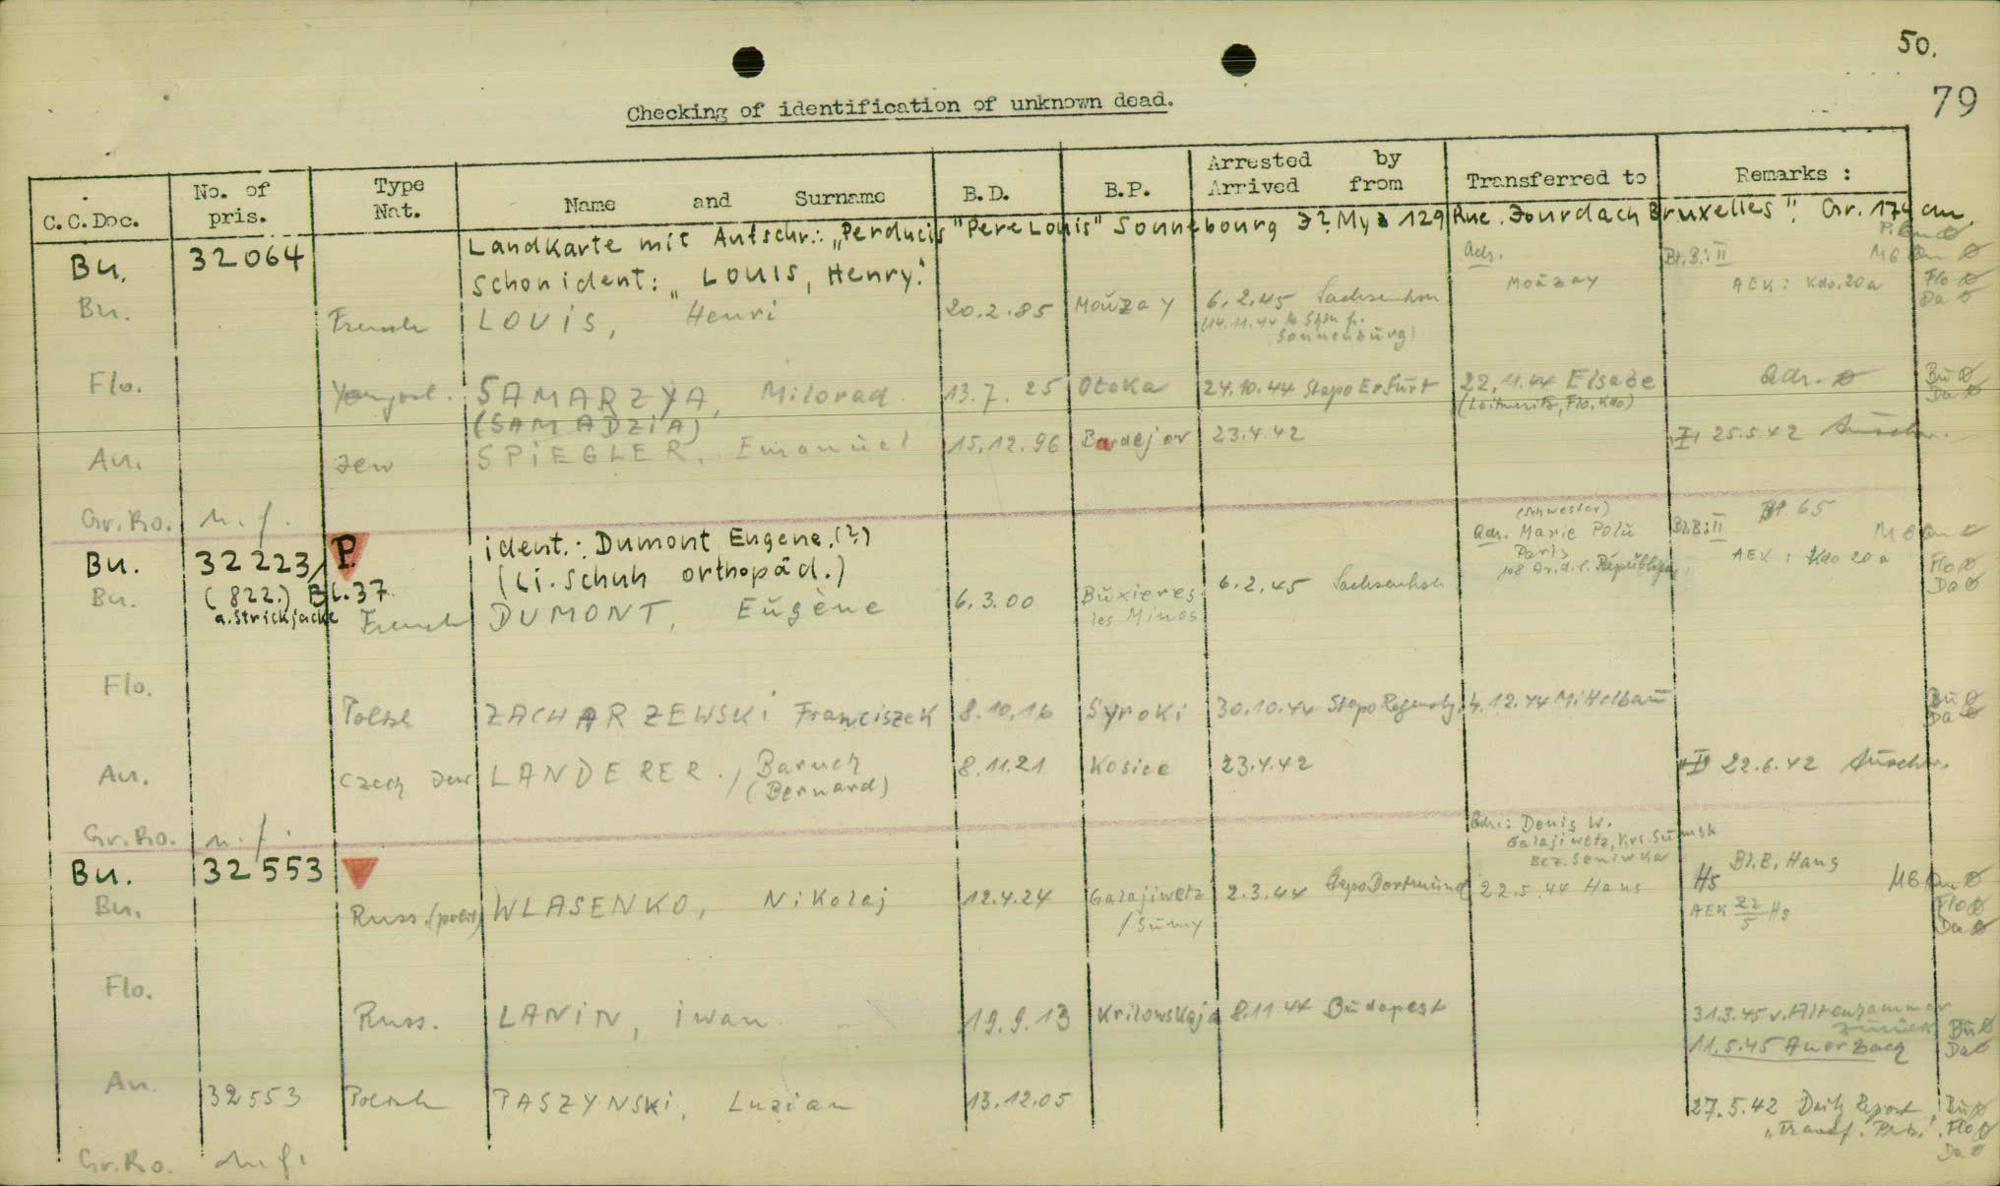 50.
79
Checking of identification of unknown dead.
C.C.Doc. No. of pris. Type Nat. Name and Surname B.D. B.P. Arrested by Arrived from Transferred to Remarks :
Bu. 32064 Landkarte mit Aufschr.: „Perducis "Pere Louis" Sonnebourg My 129 Rue. Jourdach Bruxelles". Gr. 174 cm.
Schon ident: „Louis, Henry."
Adr. Bl.B.: II
Bu. French LOUIS, Henri 20.2.85 Moŭzay 6.2.45 Sachsenhsn Moŭzay AEK: Kdo. 20a Flo ø
(14.11.44 Sonnenbŭrg) Da ø
Flo. Yougosl. SAMARZYA, Milorad 13.7.25 Otoka 24.10.44 Stapo Erfŭrt 22.11.44 Elsabe Adr. ø Bŭ ø
(SAMADZIA) (Leitmeritz, Flo, Kdo) Da ø
Au. Jew SPIEGLER, Emanŭel 15.12.96 Bardejov 23.4.42 25.5.42 Aŭschw.
Gr.Ro. n.f.
Bu. 32223 P. ident.: Dumont Eugene.(?)
(Li. Schuh orthopäd.)
(Schwester)
Adr. Marie Polŭ
Paris
108 Av. d. l. Repŭbliqŭe
Bl.B.: II 65
AEK: Kdo 20a Flo ø
Da ø
Bu. (822.) Bl.37 a. Strickjacke French DUMONT, Eŭgène 6.3.00 Bŭxieres les Mines 6.2.45 Sachsenhsn
Flo. Polish ZACHARZEWSKI Franciszek 8.10.16 Syroki 30.10.44 Stapo Regensbg. 4.12.44 Mittelbaŭ Bŭ ø
Da ø
Au. Czech Jew LANDERER, Baruch 8.11.21 Kosice 23.4.42 22.6.42 Aŭschw.
(Bernard)
Gr.Ro. n.f.
Adr.: Denis W.
Galajiwetz, Krs. Sŭmsk
Bez. Seniwka
Bu. 32553 Hs Bl.B. Hans
Bu. Russ. (polit) WLASENKO, Nikolaj 12.4.24 Galajiwetz /Sŭmy 2.3.44 Stapo Dortmŭnd 22.5.44 Hans AEK 22/5 Hs Flo ø
Da ø
Flo. Russ. LANIN, Iwan 19.9.13 Krilowskaja 8.11.44 Bŭdapest 31.3.45 v. Altenhammer zŭrück Bŭ ø
11.5.45 Auerbach Da ø
Au. 32553 Polish PASZYNSKI, Luzian 13.12.05 27.5.42 Daily Report Bŭ ø
„Transf. Pris." Flo ø
Da ø
Gr.Ro. n.f.